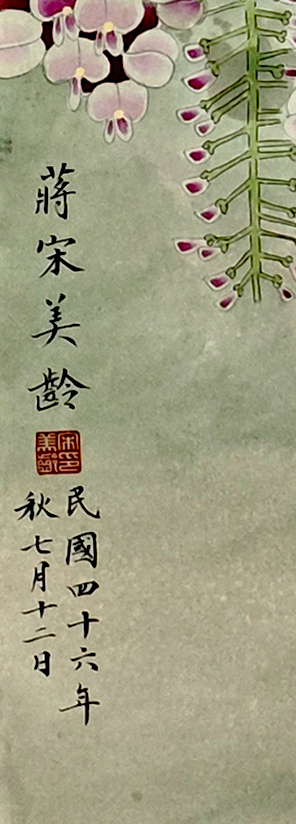 蔣宋美齡
宋美齡印
民國四十六年
秋七月十二日